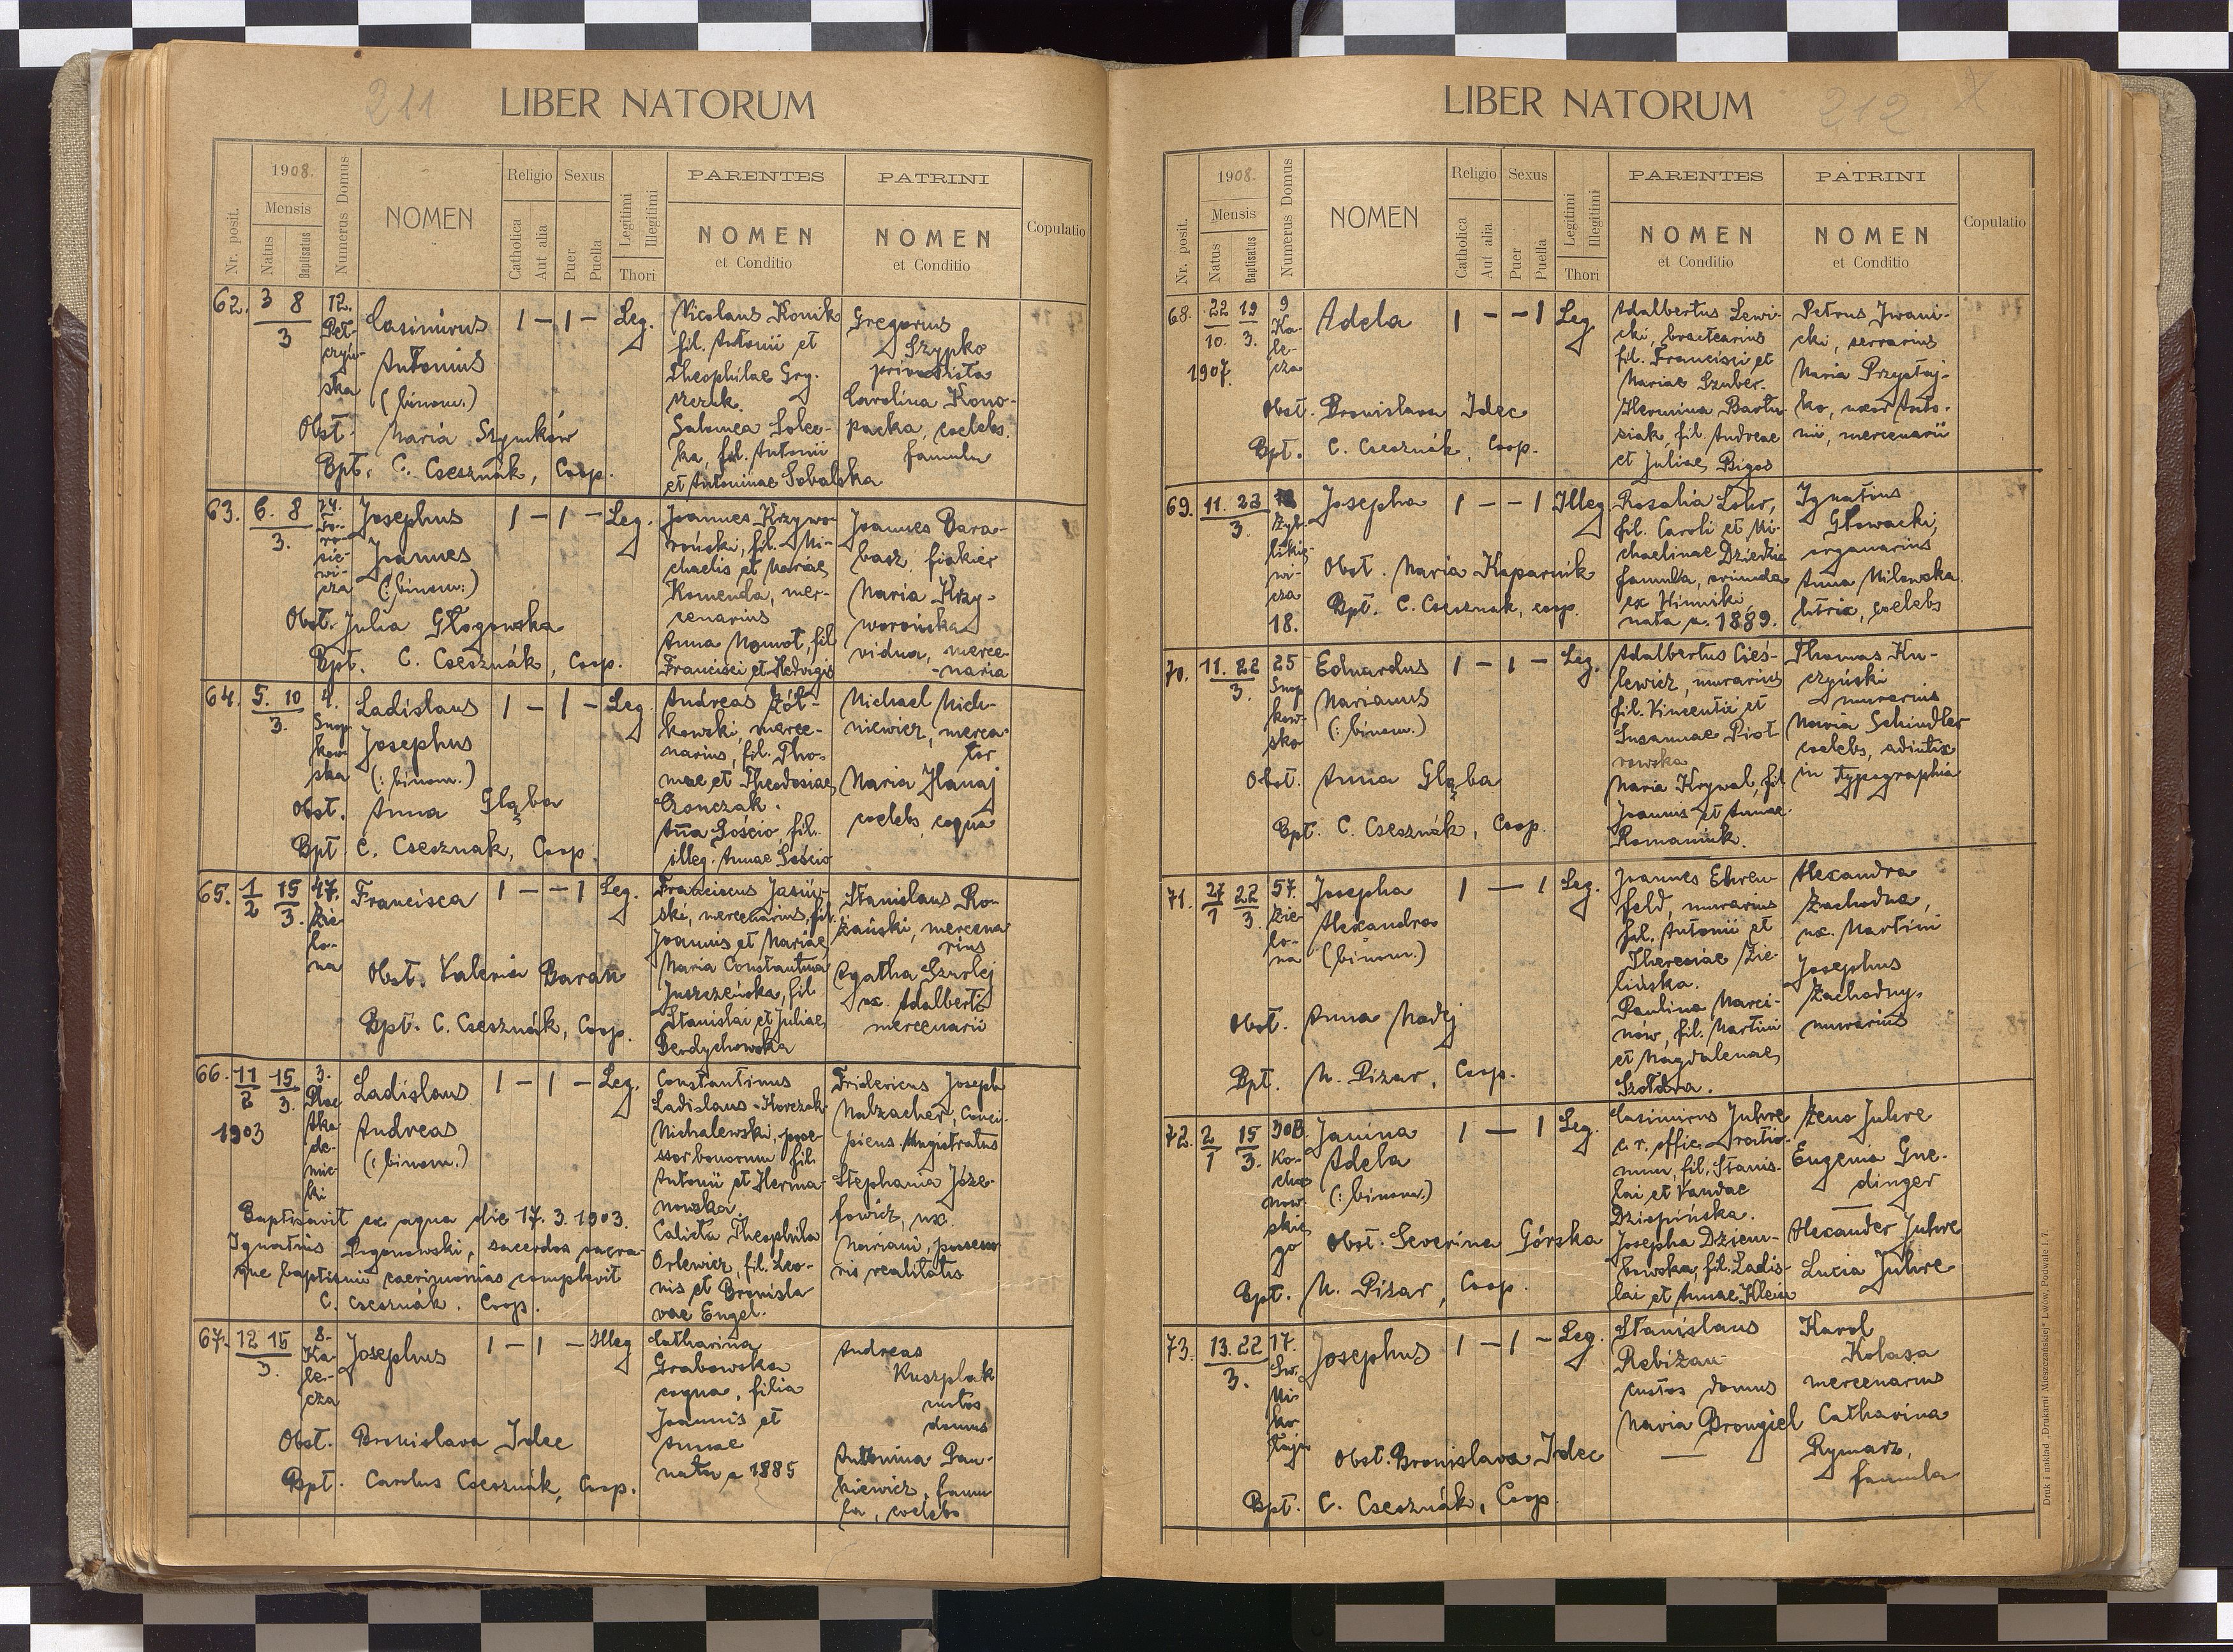 211
LIBER NATORUM
Nr. posit.
1908.
Mensis
Natus
Baptisatus
Numerus Domus
NOMEN
Religio
Catholica
Aut alia
Sexus
Puer
Puella
Legitimi
Illegitimi
Thori
PARENTES
NOMEN
et Conditio
PATRINI
NOMEN
et Conditio
Copulatio
62. 3 8
3
12.
Peł-
czyń-
ska
Casimirus
Antonius
(binom.)
1 — 1 — Leg.
Obst. Maria Szymków
Bpt. C. Csesznák, Coop.
Nicolaus Konik
fil. Antonii et
Theophilae Gry-
Salomea Solec-
ka, fil. Antonii
et Antoninae Sobalska
Gregorius
Szypko
privatista
Carolina Kono-
packa, coelebs.
famula
63. 6. 8
3.
24.
To-
ro-
sie-
wi-
cza
Josephus
Joannes
(: binom:)
1 — 1 — Leg.
Obst. Julia Głogowska
Bpt. C. Csesznák, Coop.
Joannes Krzywo-
roński, fil. Mi-
chaelis et Mariae
Komenda, mer-
cenarius
Anna Momot, fil
Francisci et Hedvigis
Joannes Bara-
basz, fiakier
Maria Krzy-
worońska
vidua, merce-
-naria
64. 5. 10
3.
4.
Snop
kow
ska
Ladislaus
Josephus
(: binom.)
1 — 1 — Leg.
Obst. Anna Głąba
Bpt. C. Csesznak, Coop.
Andreas Żół-
kowski, merce-
narius, fil. Tho-
mae et Theodosiae
Czonczak.
Anna Gościo, fil.
illeg. Annae Gościo
Michael Mich-
niewicz, merca-
tor
Maria Hanaj
coelebs, coqua
65. 1 15
2 3.
47.
Zie-
lo-
na
Francisca
1 — — 1 Leg.
Obst. Valeria Baran
Bpt. C. Csesznák, Coop.
Franciscus Jasiń-
ski, mercenarius, fil.
Joannis et Mariae
Maria Constantina
Juszczeńska, fil
Stanislai et Juliae
Berdychowska
Stanislaus Ro-
żański, mercena
rius
Agatha Szulej
ux. Adalberti
mercenarii
66. 11 15
2 3.
1903
3.
Plac
Aka
de-
mic
ki
Ladislaus
Andreas
(: binom.)
1 — 1 — Leg.
Baptisavit ex aqua die 17. 3. 1903.
Ignatius Pogonowski, sacerdos sacra-
que baptismi caerimonias complevit
C. Csesznák. Coop.
Constantinus
Ladislaus-Horczak
Michalewski, posse-
ssor bonorum fil.
Antonii et Herma-
nowska.
Calixta Theophila
Orlewicz, fil. Leo-
nis et Bronisla
vae Engel.
Fridericus Joseph
Nalzacher, Conci-
piens Magistratus
Stephania Józe-
fowicz, ux.
Mariani, possesso
ris realitatis
67. 12 15
3.
8.
Ka-
le-
cza
Josephus
1 — 1 — Illeg
Obst. Bronislava Idec
Bpt. Carolus Csesznák, Coop.
Catharina
Grabowska
coqua, filia
Joannis et
Annae
nata a 1885
Andreas
Kuszplak
custos
domus
Antonina Pan-
kiewicz, famu
la, coelebs
212
LIBER NATORUM
Nr. posit.
1908.
Mensis
Natus
Baptisatus
Numerus Domus
NOMEN
Religio
Catholica
Aut alia
Sexus
Puer
Puella
Legitimi
Illegitimi
Thori
PARENTES
NOMEN
et Conditio
PATRINI
NOMEN
et Conditio
Copulatio
68. 22 19
10. 3.
1907.
9
Ka-
le-
cza
Adela
1 — — 1 Leg
Obst. Bronislava Idec
Bpt. C. Csesznák, Coop.
Adalbertus Lewi-
cki, bractearius
fil. Francisci et
Mariae Szuber.
Hermina Bartu
siak, fil. Andreae
et Juliae Bigos
Petrus Iwani-
cki, serrarius
Maria Przystaj-
ko, uxor Anto-
nii, mercenarii
69. 11. 22
3.
Zybl
likie
wi-
cza
18.
Josepha
1 — — 1 Illeg.
Obst. Maria Kaparnik
Bpt. C. Csesznak, coop.
Rosalia Lohr,
fil. Caroli et Mi-
chaelinae Dziedzic
famula, oriunda
ex Winniki,
nata a. 1889.
Ignatius
Głowacki,
organarius
Anna Milewska
lotrix, coelebs
70. 11. 22
3.
25
Snop
kow-
ska
Eduardus
Marianus
(: binom.)
1 — 1 — Leg.
Obst. Anna Głąba
Bpt. C. Csesznák, Coop.
Adalbertus Cieś-
lewicz, murarius
fil. Vincentii et
Susannae Piot
rowska
Maria Krywal, fil
Joannis et Annae
Romaniuk.
Thomas Ku-
czyński
murarius
Maria Schindler
coelebs, adiutrix
in typographia
71. 27 22
1 3.
57.
Zie-
lo-
na
Josepha
Alexandra
(binom.)
1 — 1 Leg.
Obst. Anna Madej
Bpt. M. Pizar, Coop.
Joannes Ehren
feld, murarius
fil. Antonii et
Theresiae Zie-
lińska.
Paulina Marci-
nów, fil. Martini
et Magdalenae
Szołdra.
Alexandra
Zachodna,
ux. Martini
Josephus
Zachodny,
murarius
72. 2 15
1 3.
30B.
Ko-
cha
now-
skie
go
Janina
Adela
(: binom.)
1 — 1 Leg.
Obst. Severina Górska
Bpt. M. Pizar, Coop.
Casimirus Juhre
c. r. offic. ratio-
num, fil. Stanis-
lai et Vandae
Dziopińska.
Josepha Dziem-
bowska, fil. Ladis-
lai et Annae Klein
Zeno Juhre
Eugenia Gne-
dinger
Alexander Juhre
Lucia Juhre
73. 13. 22
3.
17.
Św.
Mi-
ko
łaja
Josephus
1 — 1 — Leg.
Obst. Bronislava Idec
Bpt. C. Csesznák, Coop.
Stanislaus
Rebizan
custos domus
Maria Brongiel
—
Karol
Kolasa
mercenarius
Catharina
Rymarz,
famula
Druk i nakład „Drukarni Mieszczańskiej" Lwów, Podwale l. 7.